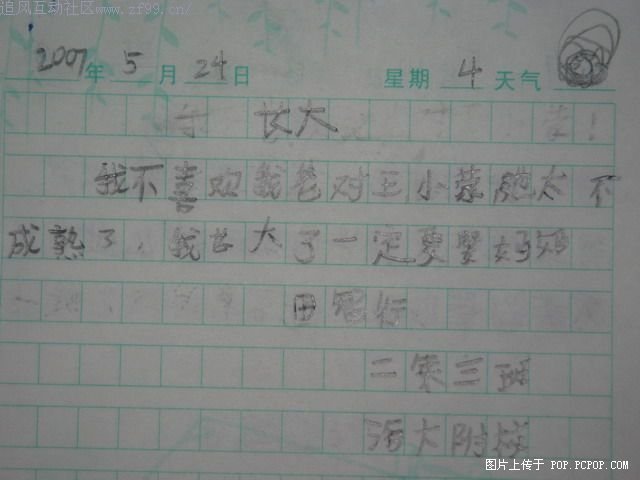 追风互动社区www.zf99.cn/
2007年5月24日 星期4天气
长大
我不喜欢我爸对王小 太不
成熟了,我长大了一定要娶好
田
二年三班
大附校
图片上传于 POP.PCPOP.COM